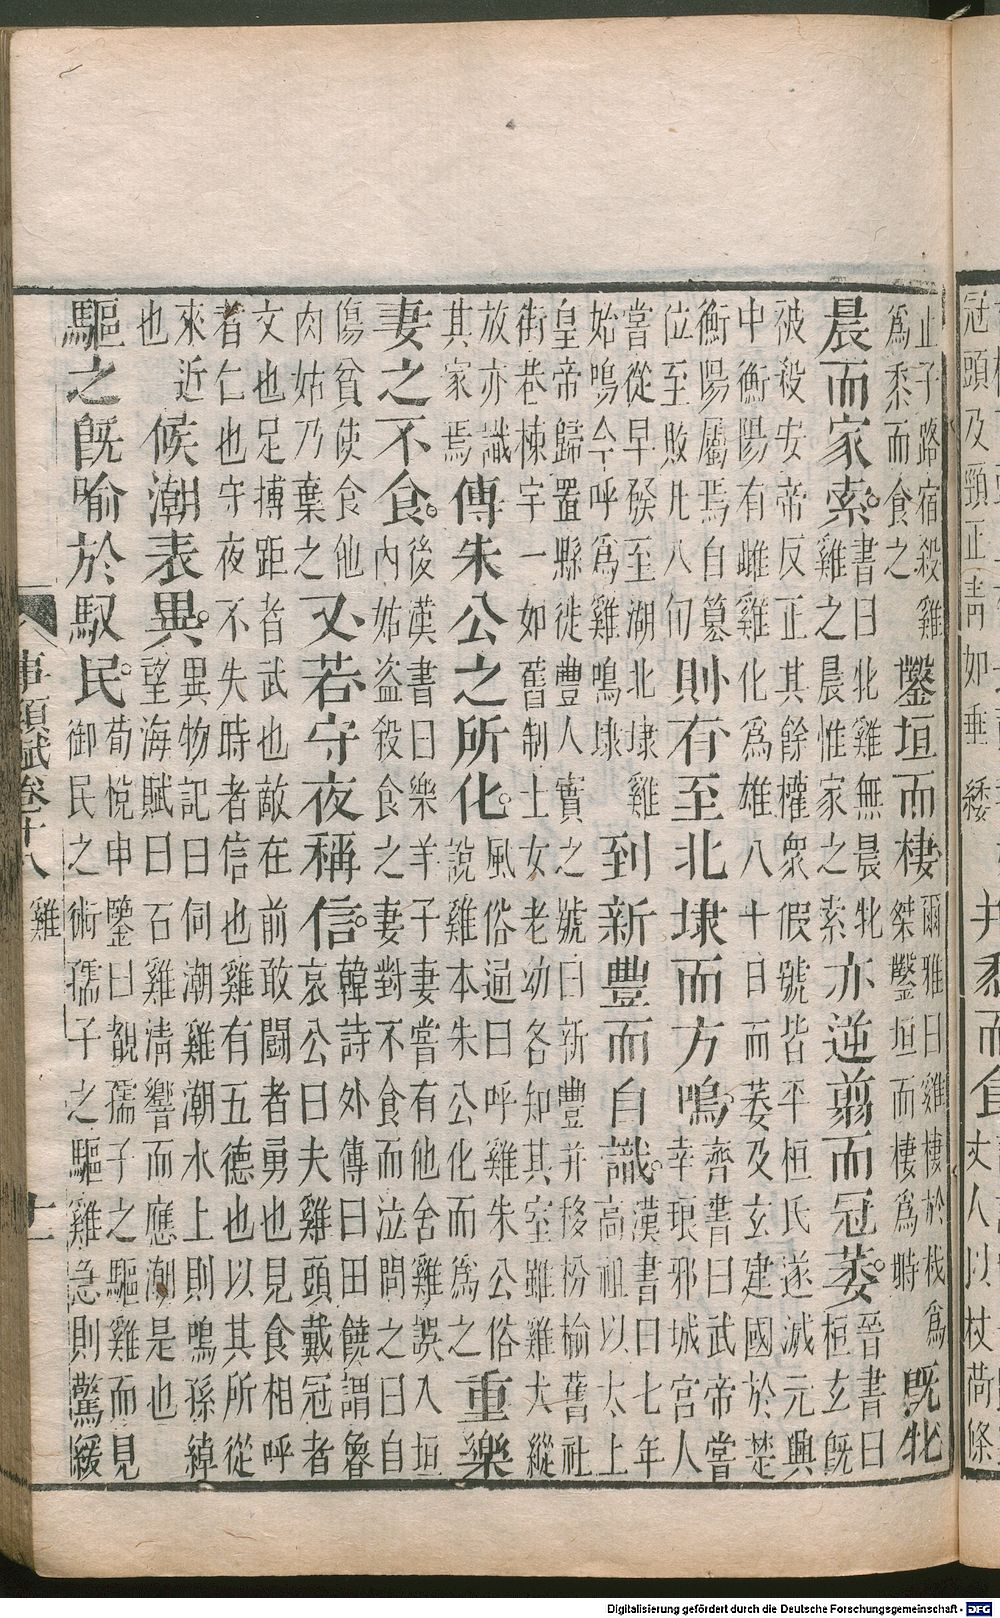 冠頭及頸正青如垂緌
并黍而食丈人以杖荷條
止子路宿殺雞
為黍而食之
鑿垣而棲
爾雅曰雞棲於栈為
桀鑿垣而棲為塒
既牝
晨而家索。
書曰牝雞無晨牝
雞之晨惟家之索
亦逆翦而冠萎。
晉書曰
桓玄既
被殺安帝反正其餘權衆假號皆平桓氏遂滅元興
中衡陽有雌雞化為雄八十日而萎及玄建國於楚
衡陽屬焉自簒
位至敗凡八旬
則有至北埭而方鳴。
齊書曰武帝嘗
幸琅邪城宮人
嘗從早發至湖北埭雞
始鳴今呼為雞鳴埭
到新豐而自識。
漢書曰七年
高祖以太上
皇帝歸置縣徙豐人實之號曰新豐并移枌榆舊社
街巷棟宇一如舊制士女老幼各知其室雖雞犬縱
放亦識
其家焉
傳朱公之所化。
風俗通曰呼雞朱公俗
說雞本朱公化而為之
重樂
妻之不食。
後漢書曰樂羊子妻嘗有他舍雞誤入垣
內姑盗殺食之妻對不食而泣問之曰自
傷貧使食他
肉姑乃棄之
又若守夜稱信。
韓詩外傳曰田饒謂魯
哀公曰夫雞頭戴冠者
文也足搏距者武也敵在前敢闘者勇也見食相呼
者仁也守夜不失時者信也雞有五德也以其所從
來近
也
候潮表異。
異物記曰伺潮雞潮水上則鳴孫綽
望海賦曰石雞清響而應潮是也
驅之既喻於馭民。
荀悅申鑒曰覩孺子之驅雞而見
御民之術孺子之驅雞急則驚緩
事類賦卷十八
雞
十一
Digitalisierung gefördert durch die Deutsche Forschungsgemeinschaft - DFG